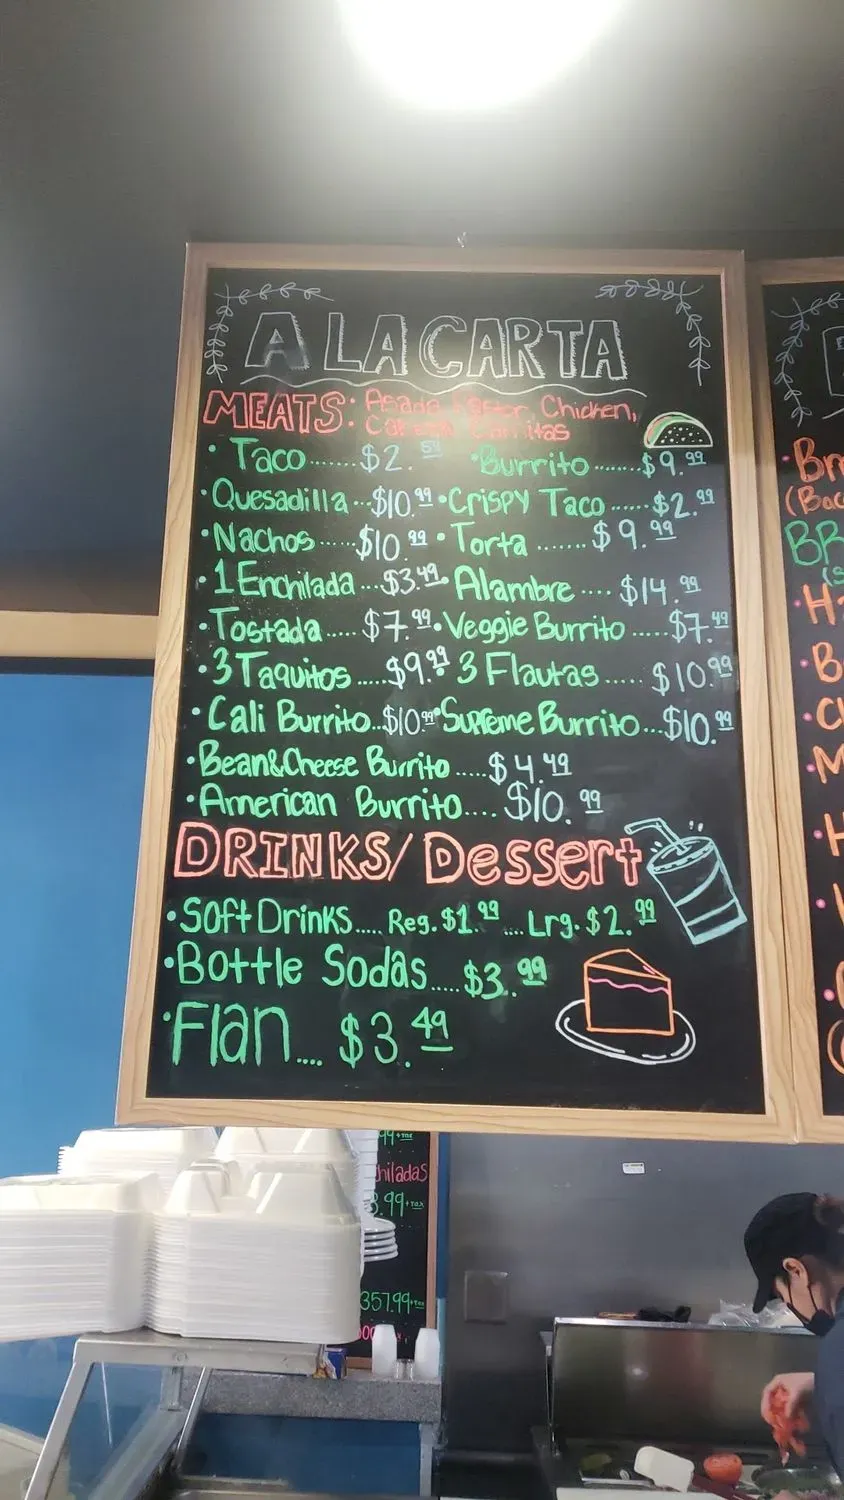 A LA CARTA
MEATS: Asada Pastor, Chicken,
Carnitas
• Taco.......$2. • Burrito.......$9.99
• Quesadilla...$10.99 • Crispy Taco......$2.99
• Nachos......$10.99 • Torta.......$9.99
• 1 Enchilada...$3.49 • Alambre....$14.99
• Tostada.....$7.99 • Veggie Burrito.....$7.49
• 3 Taquitos.....$9.99 • 3 Flautas.....$10.99
• Cali Burrito...$10.99 • Supreme Burrito...$10.99
• Bean&Cheese Burrito.....$4.49
• American Burrito....$10.99
DRINKS/Dessert
• Soft Drinks.....Reg. $1.99....Lrg. $2.99
• Bottle Sodas.....$3.99
• Flan....$3.49
hiladas
.99+tax
357.99+tax